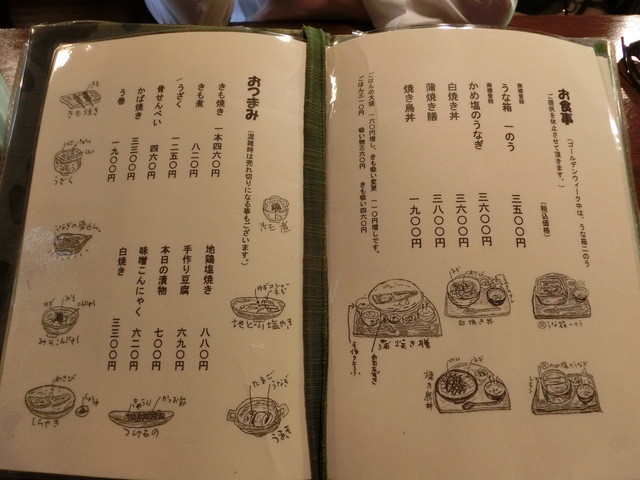 お食事
(ゴールデンウィーク中は、うな箱二のう
ご提供を休止させて頂きます。)
(税込価格)
うな箱 一のう 三五〇〇円
かめ塩のうなぎ 三六〇〇円
白焼き丼 三六〇〇円
蒲焼き膳 三八〇〇円
焼き鳥丼 一九〇〇円
ごはんの大盛 一六〇円増し、きも吸い変更 一一〇円増しです。
ごはん三一〇円 吸い物三六〇円 きも吸い四六〇円
白焼き丼
蒲焼き膳
焼き鳥丼
おつまみ
(混雑時は売れ切りになる事もございます。)
きも焼き 一本四六〇円
きも煮 八二〇円
うざく 一二五〇円
骨せんべい 四六〇円
かば焼き 三三〇〇円
う巻 一九〇〇円
地鶏塩焼き 八八〇円
手作り豆腐 六九〇円
本日の漬物 七〇〇円
味噌こんにゃく 六二〇円
白焼き 三三〇〇円
きも焼き
うざく
きも煮
地どり塩やき
みそこんにゃく
わさび
しらやき
きゅうり
かつお節
つけもの
たまご
うなぎ
うまき